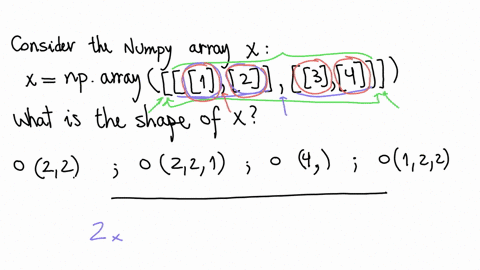 Consider the Numpy array x:
x = np.array([[[1],[2]],[[3],[4]]])
What is the shape of x?
o (2,2) ; o (2,2,1) ; o (4,) ; o (1,2,2)
2 x